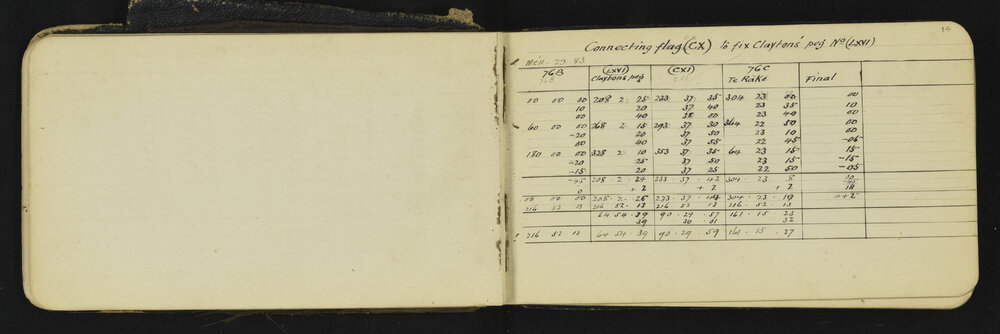 14
Connecting flag (CX) to fix Claytons' peg No (LXVI)
Mch. 29. 83
76B (LXVI) (CXI) 76C
Claytons peg Te Rake Final
00 00 00 208 2 25 233 37 35 304 23 00 00
10 20 37 40 23 35 10
00 40 38 00 23 40 00
60 00 00 268 2 15 293 37 30 364 22 50 00
-20 20 37 50 23 10 00
00 40 37 55 22 45 -05
180 00 00 328 2 10 353 37 35 64 23 15 15
-20 25 37 50 23 15 -15
-15 20 37 25 22 50 -05
-45 208 . 2 . 24 233 . 37 . 42 304 . 23 . 8
0 + 2 + 2 + 2 18
00 00 00 208 . 2 . 26 233 . 37 . 304 . 23 . 10 = + 2
216 52 13 216 52 . 13 216 52 . 13 216 . 52 . 13
64 54 . 39 90 . 29 . 57 161 . 15 . 23
39 30 . 01 32
216 52 13 64 . 54 . 39 90 . 29 . 59 161 . 15 . 27